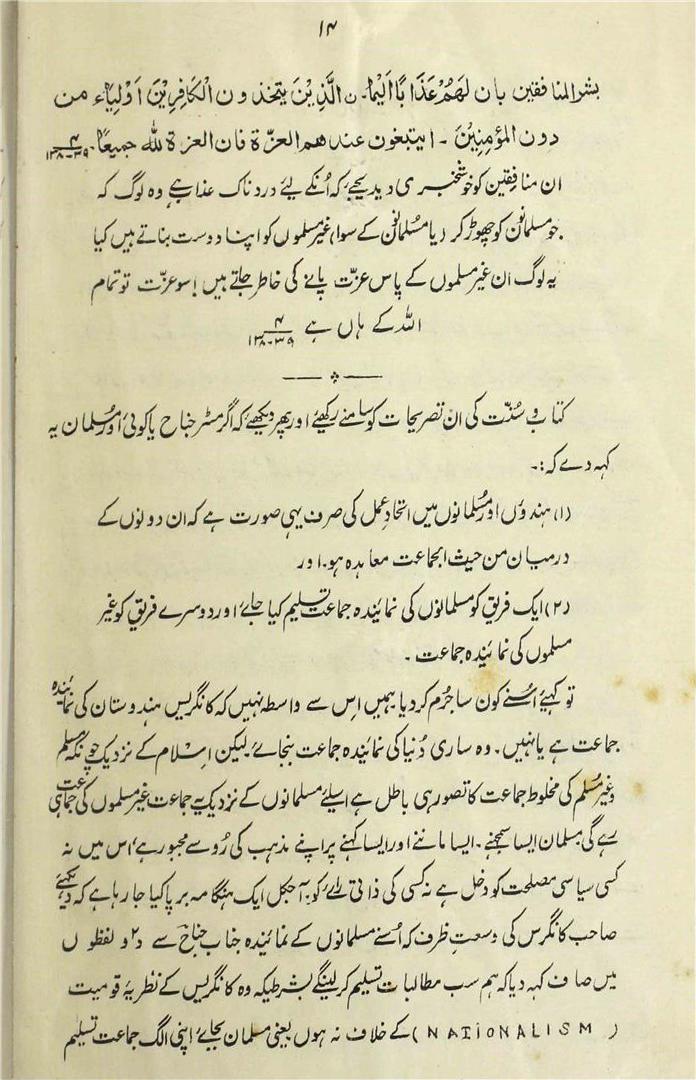 ۱۴
بشر المنافقین بان لهم عذابًا الیما۔ ن الَّذِیْنَ یتخذون الْکَافِرِیْنَ اَوْلِیَاء من
دون المؤمِنِیْنَ ۔ ایبتغون عندهم العزّة فان العزة للّٰه جمیعًا۔ ۴/۱۳۸-۳۹
ان منافقین کو خوشخبری دیدیجئے کہ اُنکے لیٔے دردناک عذاب ہے وہ لوگ کہ
جو مسلمانوں کو چھوڑ کر (یا مسلمانوں کے سوا) غیر مسلموں کو اپنا دوست بناتے ہیں کیا
یہ لوگ ان غیر مسلموں کے پاس عزّت پانے کی خاطر جاتے ہیں! سو عزّت تو تمام
اللہ کے ہاں ہے ۴/۱۳۸-۳۹
کتاب و سُنّت کی ان تصریحات کو سامنے رکھیٔے اور پھر دیکھیٔے کہ اگر مسٹر جناح یا کوئی اور مُسلمان یہ
کہہ دے کہ:۔
(۱) ہندوؤں اور مُسلمانوں میں اتحادِ عمل کی صرف یہی صورت ہے کہ ان دونوں کے
درمیان من حیث الجماعت معاہدہ ہو۔ اور
(۲) ایک فریق کو مسلمانوں کی نمائیندہ جماعت تسلیم کیا جائے اور دوسرے فریق کو غیر
مسلموں کی نمائیندہ جماعت ۔
تو کہیٔے اُسنے کون سا جُرم کر دیا ہمیں اس سے واسطہ نہیں کہ کانگریس ہندوستان کی نمائیندہ
جماعت ہے یا نہیں۔ وہ ساری دُنیا کی نمائیندہ جماعت بنجائے لیکن اسلام کے نزدیک چونکہ مسلم
و غیر مُسلم کی مخلوط جماعت کا تصور ہی باطل ہے اسلیٔے مسلمانوں کے نزدیک یہ جماعت غیر مسلموں کی جماعت ہی
رہے گی مسلمان ایسا سمجھنے۔ ایسا ماننے اور ایسا کہنے پر اپنے مذہب کی رُو سے مجبور ہے، اس میں نہ
کسی سیاسی مصلحت کو دخل ہے نہ کسی کی ذاتی رائے کو۔ آجکل ایک ہنگامہ برپا کیا جا رہا ہے کہ دیکھیٔے
صاحب کانگرس کی وسعتِ ظرف کہ اُسنے مسلمانوں کے نمائیندہ جناب جناح سے دو لفظوں
میں صاف کہہ دیا کہ ہم سب مطالبات تسلیم کر لینگے بشرطیکہ وہ کانگریس کے نظریۂ قومیت
(NATIONALISM) کے خلاف نہ ہوں یعنی مسلمان بجائے اپنی الگ جماعت تسلیم